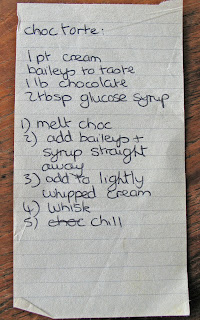 choc torte:
1 pt cream
baileys to taste
1 lb chocolate
2 tbsp glucose syrup
1) melt choc
2) add baileys +
syrup straight
away
3) add to lightly
whipped cream
4) whisk
5) choc chill